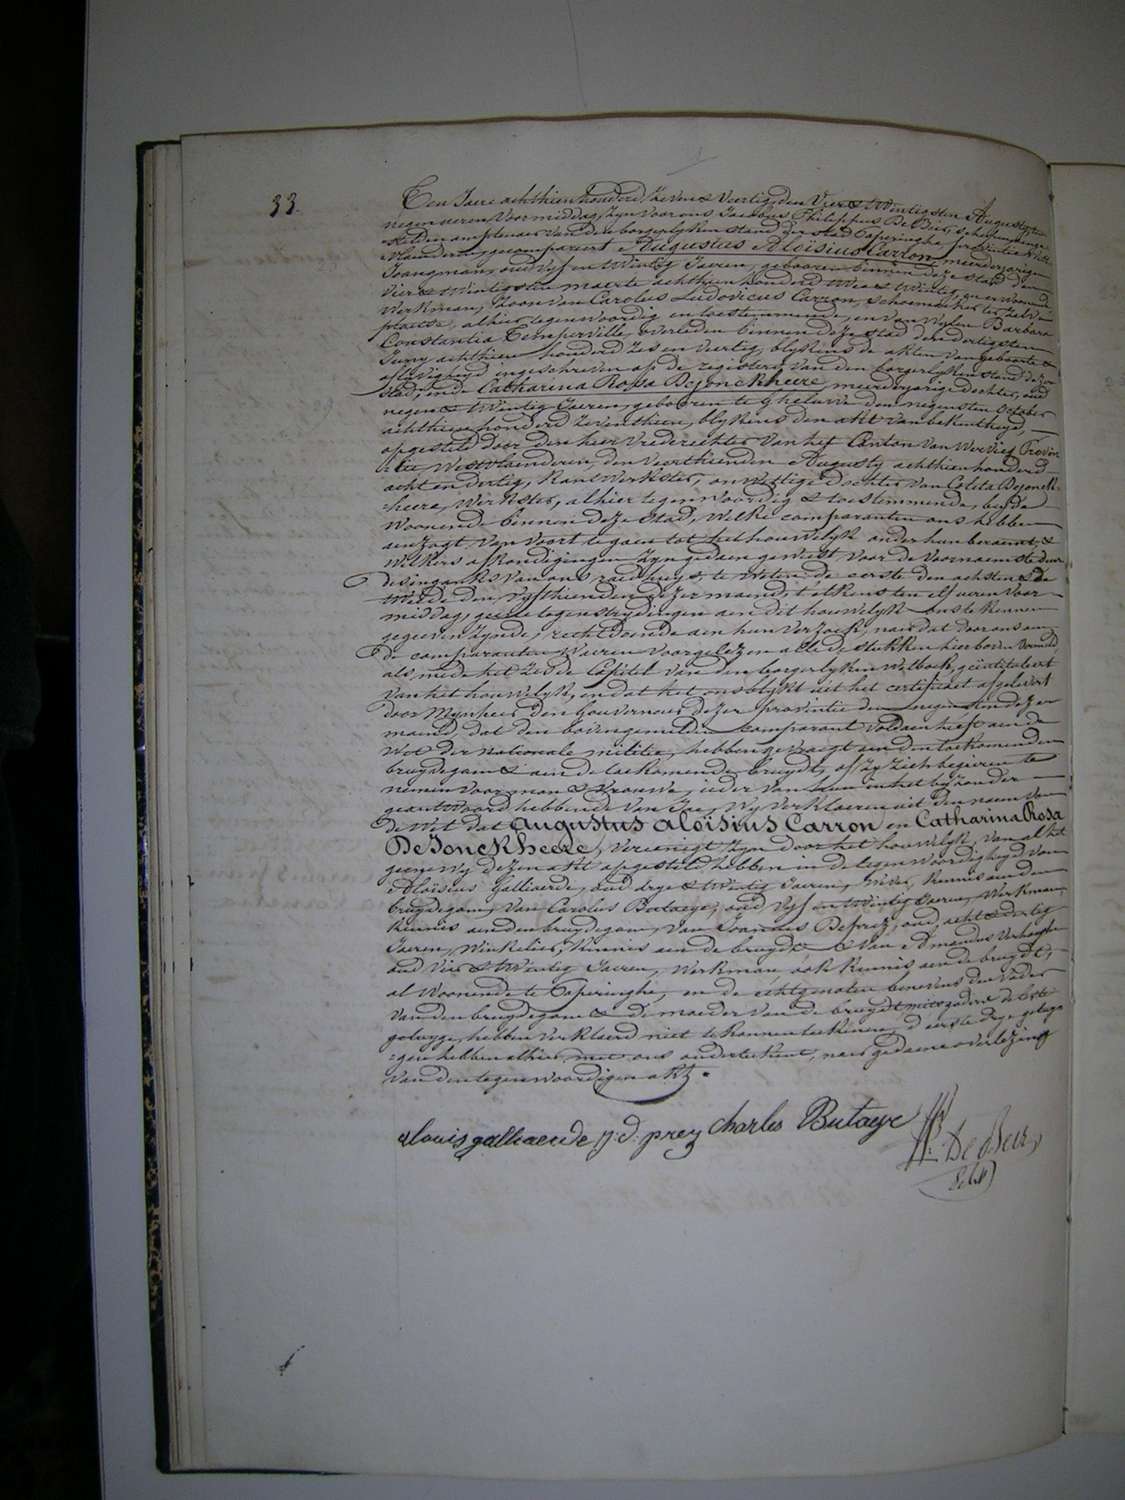 33.
Ten Jaere achthien honderd zeven & veertig, den vier & twintigsten Augusty, ten
negen ueren voormiddag, zyn voor ons Jacobus Philippus De Bus, schepenen ge-
ambtenaer van den borgerlyken stand der stad Poperinghe provintie West
Vlaenderen, gecompareert Augustus Aloïsius Carron meerderjarigen
Jongman, oud vyf en twintig Jaeren, gebooren binnen deze stad den
vier & twintigsten maerte achthien honderd twee & twintig, en er woonende
Werkman, zoon van Carolus Ludovicus Carron, schoenmaker ter zelve
plaetse, alhier tegenwoordig en toestemmende, en van wylen Barbara
Constantia Temperville, overleden binnen deze stad den dertigsten
Juny achthien honderd zes en veertig, blykens de akten van geboorte &
aflyvigheyd ingeschreven op de registers van den borgerlyken stand dezer
stad, en de Catharina Rosa Dejonckheere, meerderjarige dochter, oud
negen & twintig Jaeren, gebooren te Gheluwe den negensten October
achthien honderd zeventhien, blykens den akt van bekentheyd,
opgesteld door den heer Vrederechter van het Canton van Wervicq Provin
-cie Westvlaenderen, den veerthienden Augusty achthien honderd
acht en dertig, Kantwerkster, onwettige dochter van Coleta Dejonck-
-heere, Werkster, alhier tegenwoordig & toestemmende, beyde
Woonende binnen deze stad, welke comparanten ons hebben
aenzogt van voort te gaen tot het houwelyk onder hun beraemt, &
wilkers afkondigingen zyn gedaen geweest voor de voornaemste deur
des ingank's van ons raedhuys, te weten: de eerste den achsten & de
twede den vyfthienden dezer maend, t'elkens ten elf ueren voor-
middag, geene tegenstrydingen aen dit houwelyk ons te kennen
gegeven zynde; rechtdoende aen hun verzoek, naer dat door ons aen
de comparanten waeren voorgelezen alle de stukken hier boven vermeld,
als mede het zesde Capitel van den borgerlyken Wetboek, geintituleert
van het houwelyk, en dat het ons blykt uit het certificaet afgelevert
door Mynheer den Gouverneur dezer provintie den negensten dezer
maend, dat den bovengemelden comparant voldaen heeft aen de
Wet der nationale militie, hebben gevraegt aen den toekomenden
bruydegom & aen de toekomende bruydt, of zy zich begeeren te
nemen voor man & vrouwe, ieder van hun in het byzonder
geantwoord hebbende van Ja, Wy verklaeren uit den naem van
de Wet dat Augustus Aloïsius Carron en Catharina Rosa
DeJonckheere, vereenigt zyn door het houwelyk, van al het
geene wy dezen akt opgesteld hebben in de tegenwoordigheyd van
Aloïsius Galliaerde, oud drye & twintig Jaeren, kennis aen den
bruydegom, van Carolus Butaeye, oud vyf en twintig Jaeren, Werkman
kennis aen den bruydegom, van Joannes Deprez, oud acht & dertig
Jaeren, Winkelier, kennis aen de bruydt & van Edmondus Verhaeghe
oud vier & twintig Jaeren, Werkman ook kennis aen de bruydt,
al woonende te Poperinghe, en de echtgenoten benevens den vader
van den bruydegom & de moeder van de bruydt mitsgaders de leste
getuyge, hebben verklaerd niet te konnen teekenen, d'eerste drye getuy-
-gen hebben alhier, met ons onderteekent, naer gedaene overlezing
van den tegenwoordigen akt.
alouis galliaerde j: d: prez Charles Butaeye
Ph. De Bus